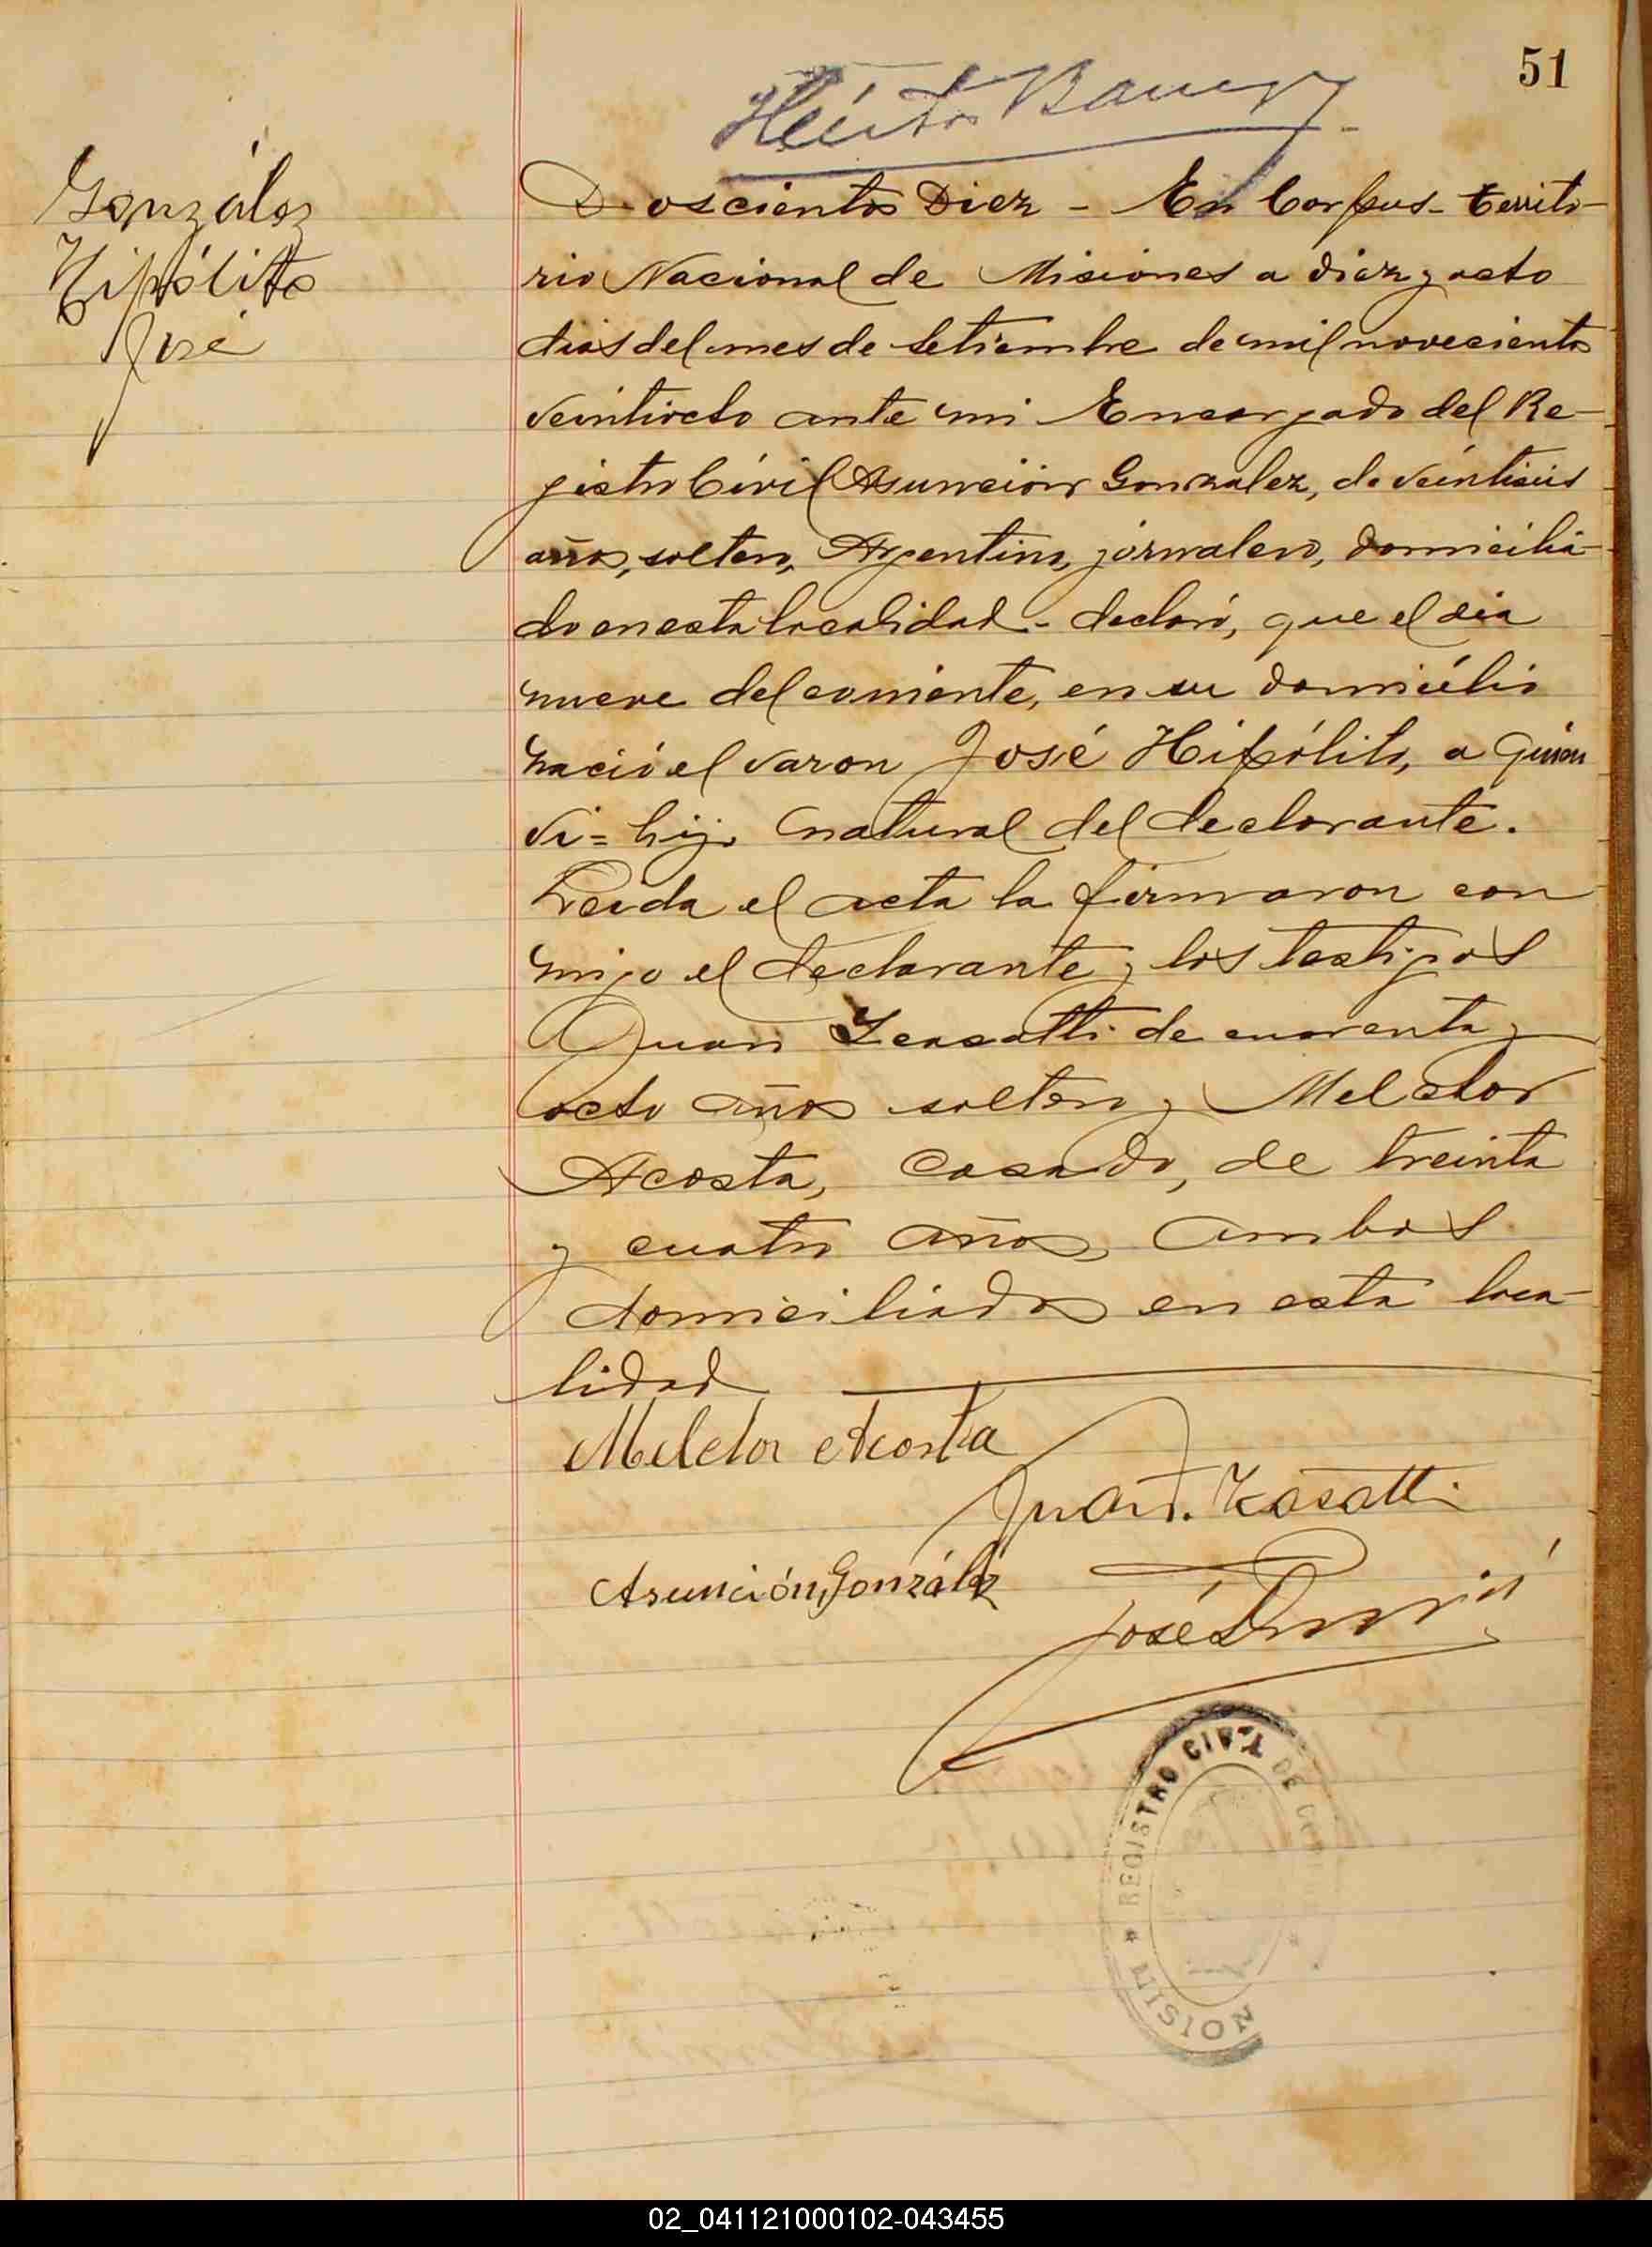 51
Héctor
González
Hipólito
José
Doscientos Diez - En Corpus - territo-
rio Nacional de Misiones a diez y octo
dias del mes de Setiembre de mil novecientos
veintiocto ante mi Encargado del Re-
gistro Cívil Asunción Gonzalez, de veintiseis
años, soltero, Argentino, jornalero, domicilia-
do en esta localidad - declaró, que el dia
nueve del corriente, en su domicílio
nació el varon José Hipólito, a quien
vi = hijo natural del declarante.
Leida el acta la firmaron con
migo el declarante y los testigos
Juan de cuarenta y
octo años soltero y Melctor
Acosta, Casado, de treinta
y cuatro años, ambos
domiciliados en esta loca-
lidad
Melctor Acosta
Juan
Asunción González
José
REGISTRO CIVIL DE
* MISION
02_041121000102-043455